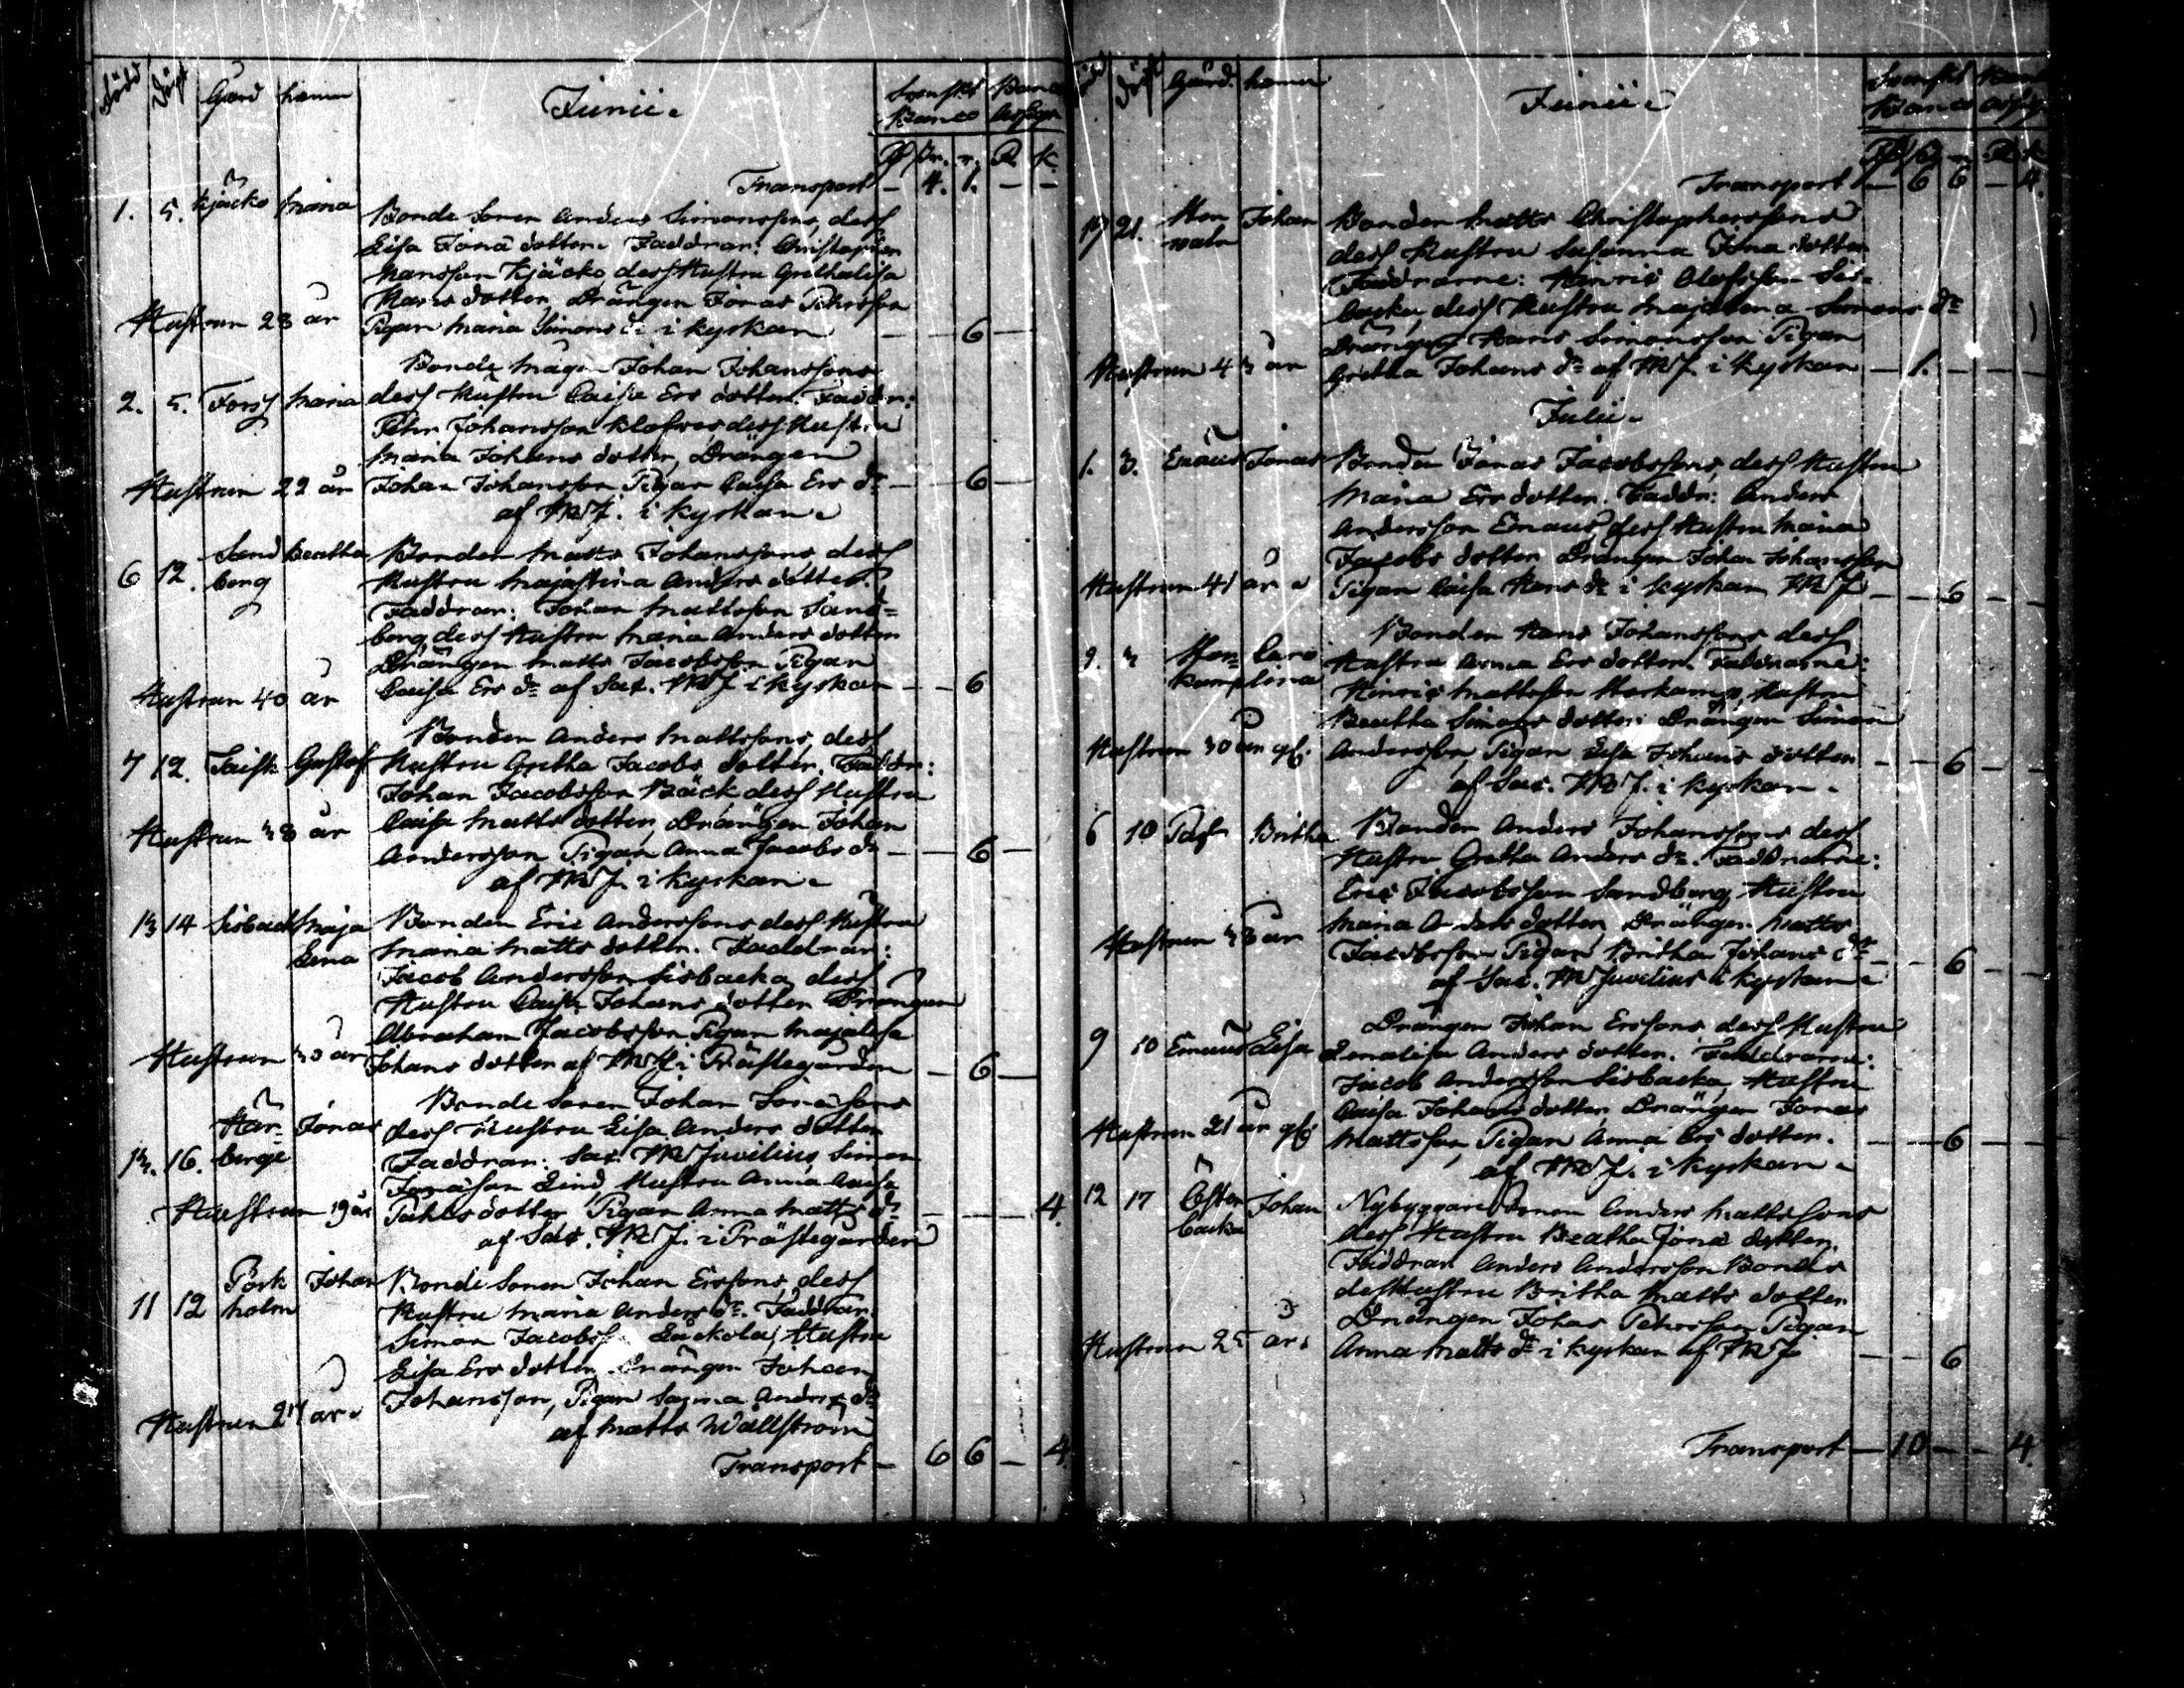 Född Döpt Gård hamn Junii. Svensk Banco Banco Assign
R Pr. r. R K.
Transport - 4. 1. - -
1. 5. Kjäcko Maria Bonde Sonen Anders Simonssons, dess
Lisa Jona dotter. Faddrar: Christopher
Hansson Kjäcko dess Hustru Grethalisa
Hans dotter, Drängen Jonas Pehrsson
Hustrun 23 år Pigan Maria Simons dr i kyrkan - - 6 -
Bonde mågen Johan Johanssons
2. 5. Forss Maria dess Hustru Caisa Ers dotter. Faddr:
Pehr Johansson Klofves dess Hustru
Maria Johans dotter, Drängen
Hustrun 22 år Johan Johansson Pigan Caisa Ers dr - - 6 -
af MJ. i kyrkan.
Sand Beatha Bonden Matts Johanssons dess
6 12. berg Hustru Majastina Anders dotter.
Faddrar: Johan Mattsson Sand=
berg dess Hustru Maria Anders dotter
Drängen Matts Jacobsson Pigan
Hustrun 40 år Caisa Ers dr af Sac. MJ i kyrkan - - 6
Bonden Anders Mattssons, dess
7 12. Gustaf Hustru Gretha Jacobs dotter, Faddr:
Johan Jacobsson Bäck dess Hustru
Hustrun 38 år Caisa Matts dotter, Drängen Johan
Andersson Pigan Anna Jacobs dr - - 6 -
af MJ. i kyrkan.
13 14 Sisback Maja Bonden Eric Anderssons dess Hustru
Lena Maria Matts dotter. Faddrar:
Jacob Andersson Sisbacka dess
Hustru Caisa Johans dotter Drängen
Abraham Jacobsson Pigan Majalisa
Hustrun 30 år Johans dotter af MJ i Prästegården - 6 -
Bonde Sonen Johan Jonassons
Här= Jonas dess Hustru Lisa Anders dotter
13. 16. berge Faddrar: Sac. M Juvelius Simon
Jonasson Lind Hustru Anna Caisa
Hustrun 19 år Pehrs dotter Pigan Anna Matts dr - - - - 4.
af Sac. MJ. i Prästegården
Pork Johan Bonde Sonen Johan Erssons, dess
11 12 holm Hustru Maria Anders dr. Faddrar:
Simon Jacobss Läckola, Hustru
Lisa Ers dotter, Drängen Johan
Hustrun 27 år. Johansson, Pigan Anders dr
af Matts Wallström
Transport - 6 6 - 4.
Född Döpt Gård. hamn Junii. Svensk Banco Banco Assig
Transport - 6 6 - 4.
19 21. Johan Bonden Matts Christopherssons
dess Hustru Susanna Jona dotter
Faddrarne: Hinric Olofsson Sis=
backa, dess Hustru Majalena Simons dr
Drängen Hans Simonsson Pigan
Hustrun 43 år Gretha Johans dr af MJ. i kyrkan - 1. - - -
Julii.
1. 3. Emaus Jonas Bonden Jonas Jacobssons, dess Hustru
Maria Ers dotter. Faddr: Anders
Andersson Emaus, dess Hustru Maria
Jacobs dotter Drängen Johan Johansson
Hustrun 41 år. Pigan Caisa Hans dr i kyrkan MJ - - 6 - -
Bonden Hans Johanssons dess
2. 3 Stor= Caro Hustru Anna Ers dotter. Faddrarne:
kamp lina Hinric Mattsson Storkamp, Hustru
Beatha Simons dotter: Drängen Simon
Hustrun 30 år gl. Andersson, Pigan Lisa Johans dotter - - 6 - -
af Sac. MJ. i kyrkan.
6 10 Pass Britha Bonden Anders Johanssons dess
Hustru Gretha Anders dr. Faddrarne:
Eric Jacobsson Sandberg, Hustru
Maria Anders dotter Drängen Matts
Hustrun 38 år Jacobsson Pigan Britha Johans dr - - 6 - -
af Sac. M Juvelius i kyrkan.
Drängen Johan Erssons dess Hustru
9 10 Emaus Lisa Lenalisa Anders dotter. Faddrarne:
Jacob Andersson Sisbacka, Hustru
Caisa Johans dotter Drängen Jonas
Hustrun 21 år gl. Mattsson, Pigan Anna Ers dotter. - - 6 - -
af MJ. i kyrkan.
12 17 Öster Johan Nybyggare Sonen Anders Mattssons
backa dess Hustru Beatha Jona dotter.
Faddrar Anders Andersson Bonds
dess Hustru Britha Matts dotter
Drängen Johan Pehrsson Pigan
Hustrun 25 år. Anna Matts dr i kyrkan af MJ - - 6
Transport - 10 - - 4.